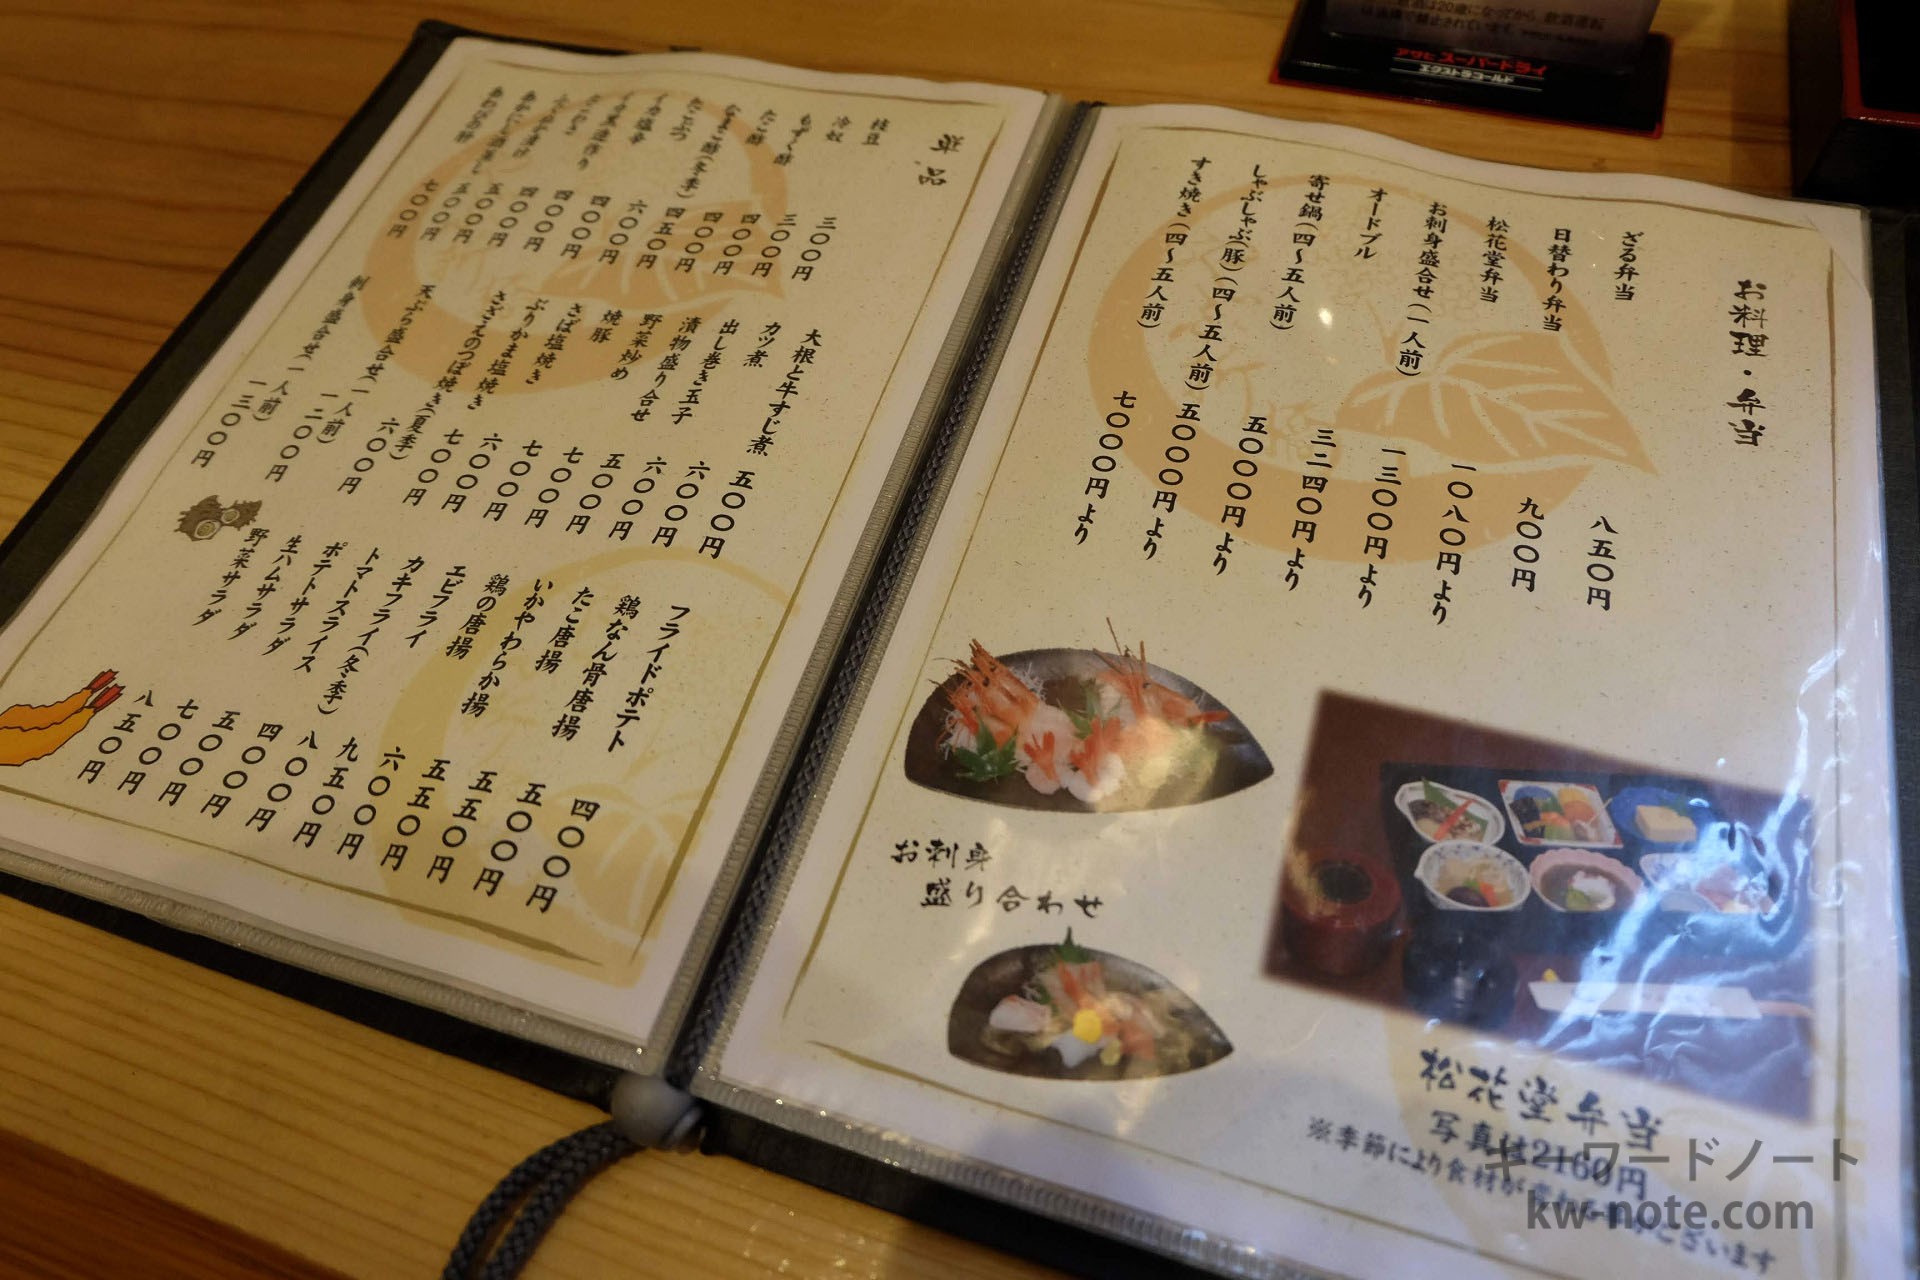 お料理・弁当
ざる弁当 八五〇円
日替わり弁当 九〇〇円
松花堂弁当 一〇八〇円より
お刺身盛合せ(一人前) 一三〇〇円より
オードブル 三二四〇円より
寄せ鍋(四〜五人前) 五〇〇〇円より
しゃぶしゃぶ(豚)(四〜五人前) 五〇〇〇円より
すき焼き(四〜五人前) 七〇〇〇円より
お刺身
盛り合わせ
松花堂弁当
写真は2160円
※季節により食材が ございます
単品
枝豆 三〇〇円
冷奴 三〇〇円
もずく酢 四〇〇円
たこ酢 四〇〇円
なまこ酢(冬季) 四五〇円
たこぶつ 六〇〇円
イカ塩辛 四〇〇円
イカ黒造作り 四〇〇円
たこわさ 四〇〇円
漬け 五〇〇円
あかにし酒蒸し 五〇〇円
あわびの肝 七〇〇円
大根と牛すじ煮 五〇〇円
カツ煮 六〇〇円
出し巻き玉子 六〇〇円
漬物盛り合せ 五〇〇円
野菜炒め 七〇〇円
焼豚 七〇〇円
さば塩焼き 六〇〇円
ぶりかま塩焼き 七〇〇円
さざえのつぼ焼き(夏季) 六〇〇円
天ぷら盛合せ(一人前) 一二〇〇円
刺身盛合せ(一人前) 一三〇〇円
フライドポテト 四〇〇円
鶏なん骨唐揚 五〇〇円
たこ唐揚 五五〇円
いかやわらか揚 五五〇円
鶏の唐揚 六〇〇円
エビフライ 九五〇円
カキフライ(冬季) 八〇〇円
トマトスライス 四〇〇円
ポテトサラダ 五〇〇円
生ハムサラダ 七〇〇円
野菜サラダ 八五〇円
アサヒスーパードライ
エクストラコールド
キーワードノート
kw-note.com